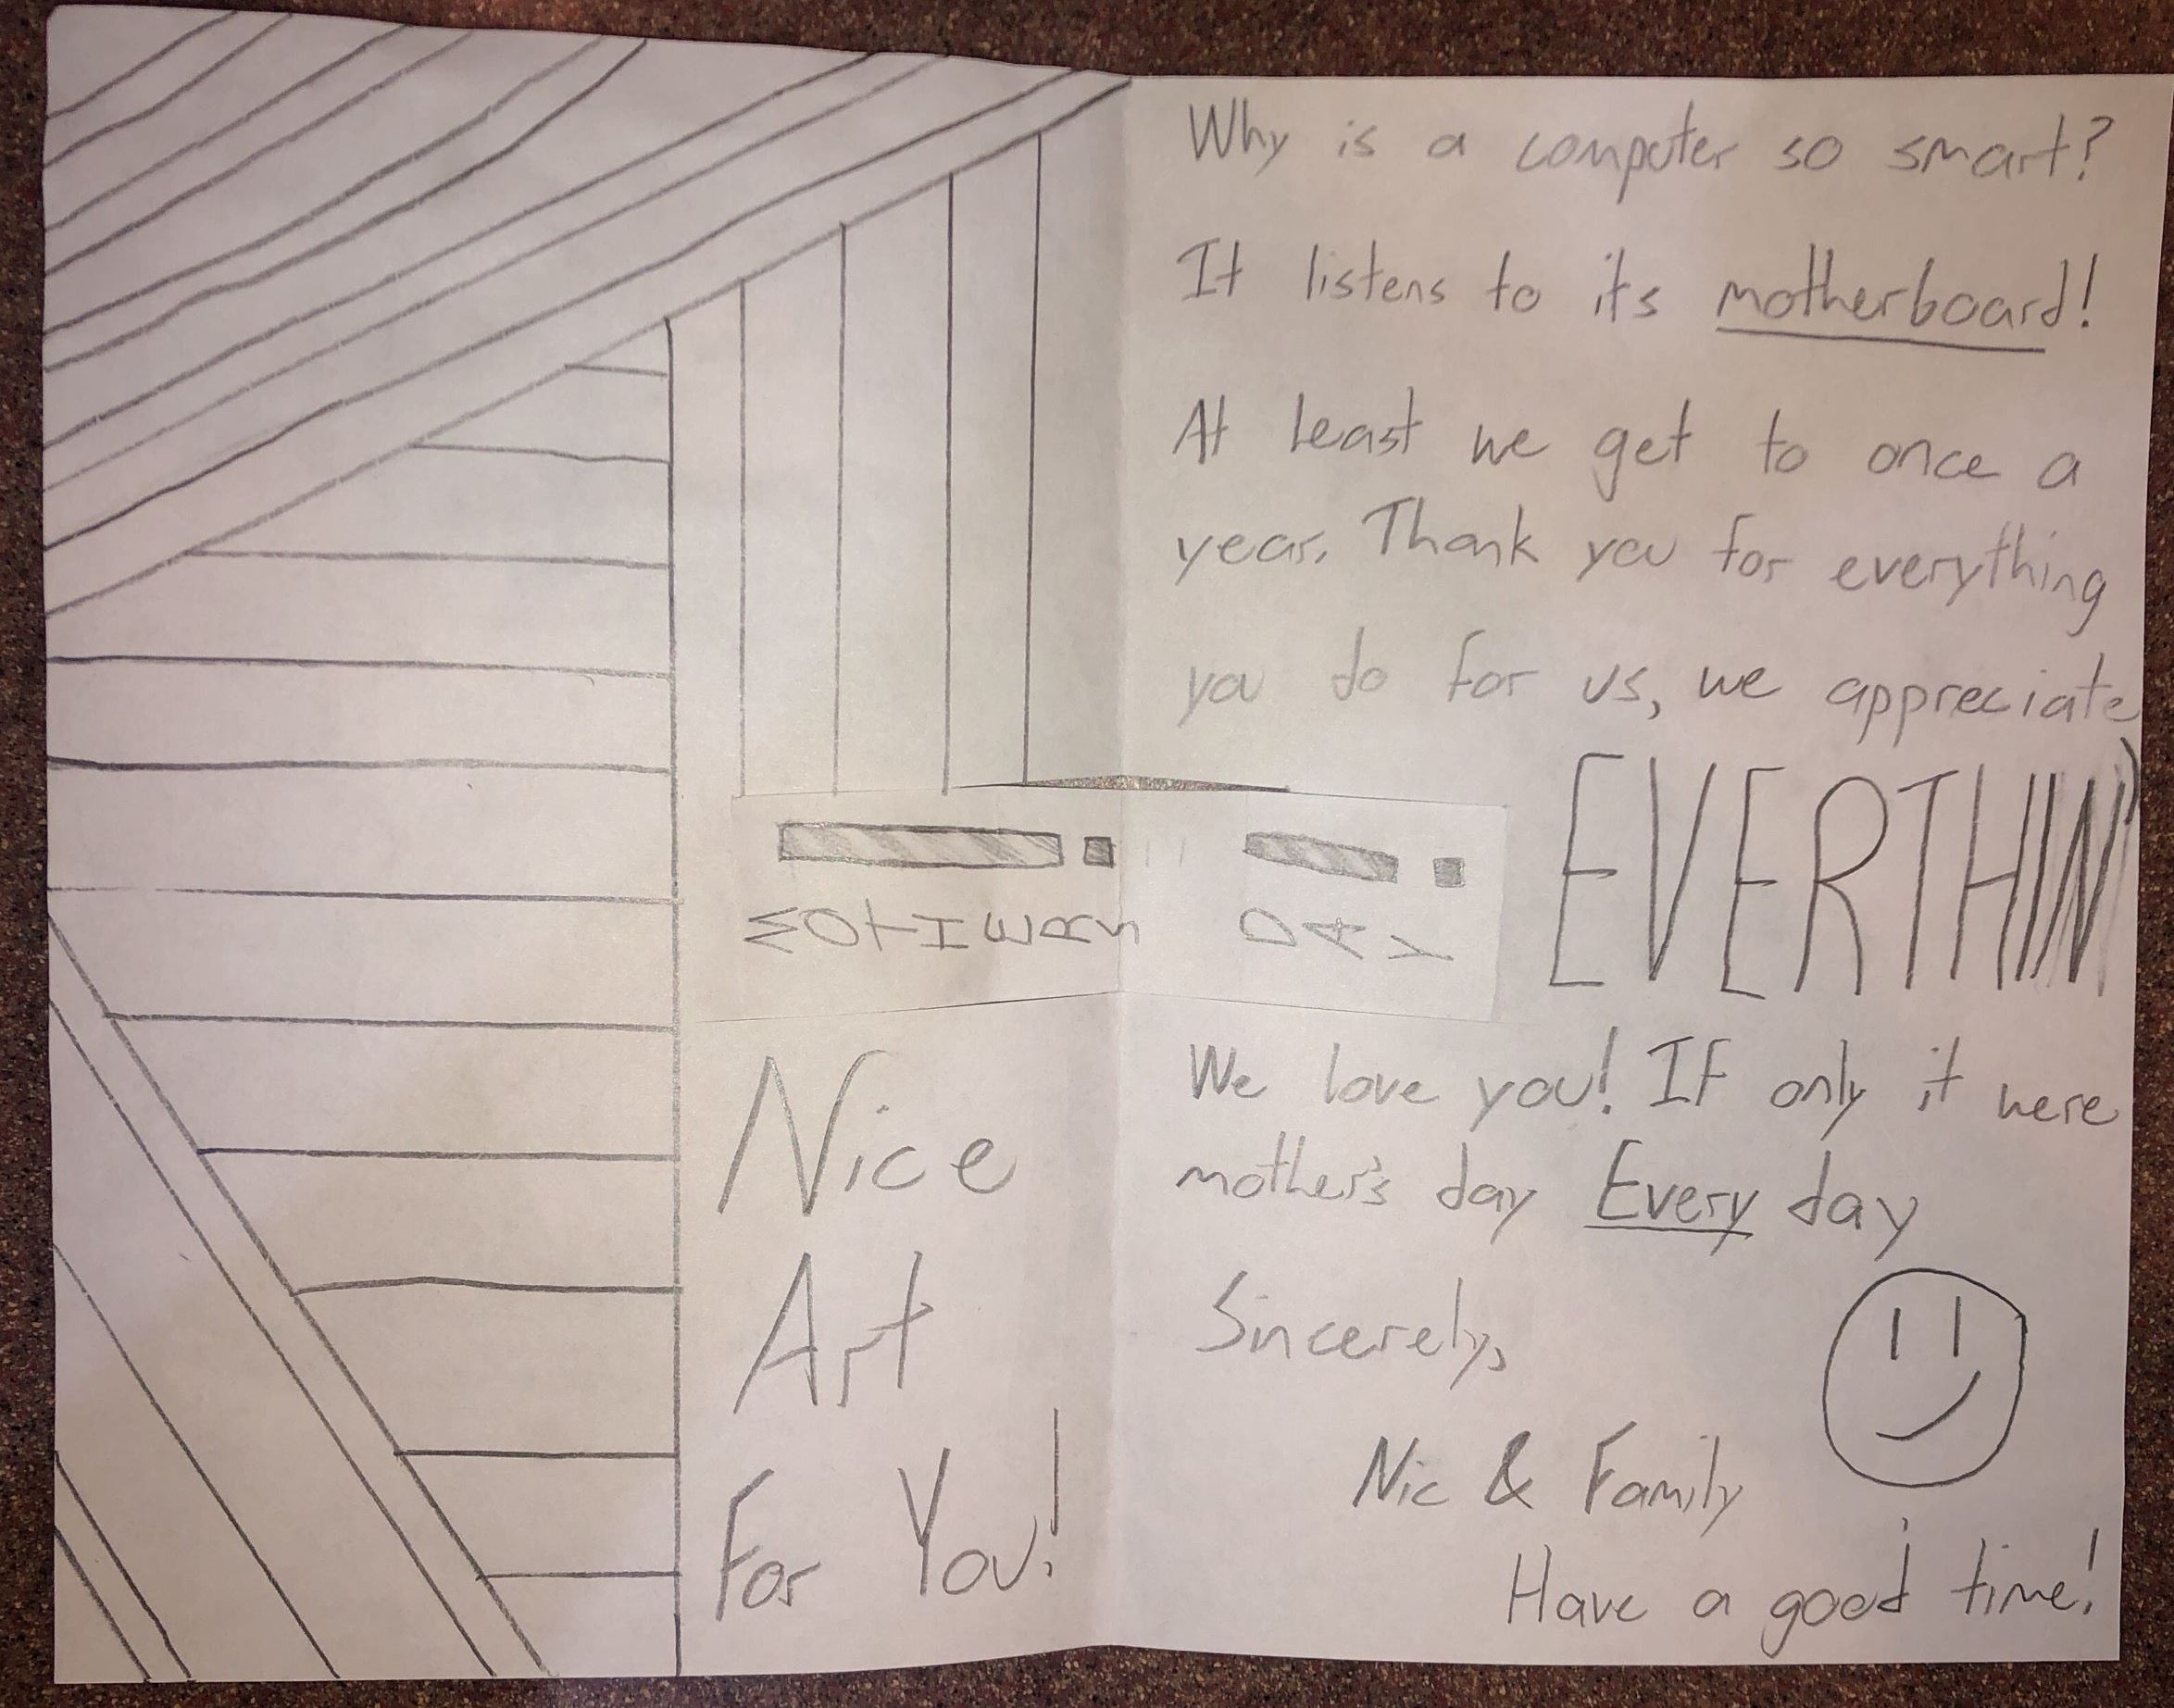 MOTHERS DAY
Nice
Art
For You!
Why is a computer so smart?
It listens to its motherboard!
At least we get to once a
year. Thank you for everything
you do for us, we appreciate
EVERTHIN
We love you! If only it were
mother's day Every day
Sincerely,
Nic & Family
Have a good time!